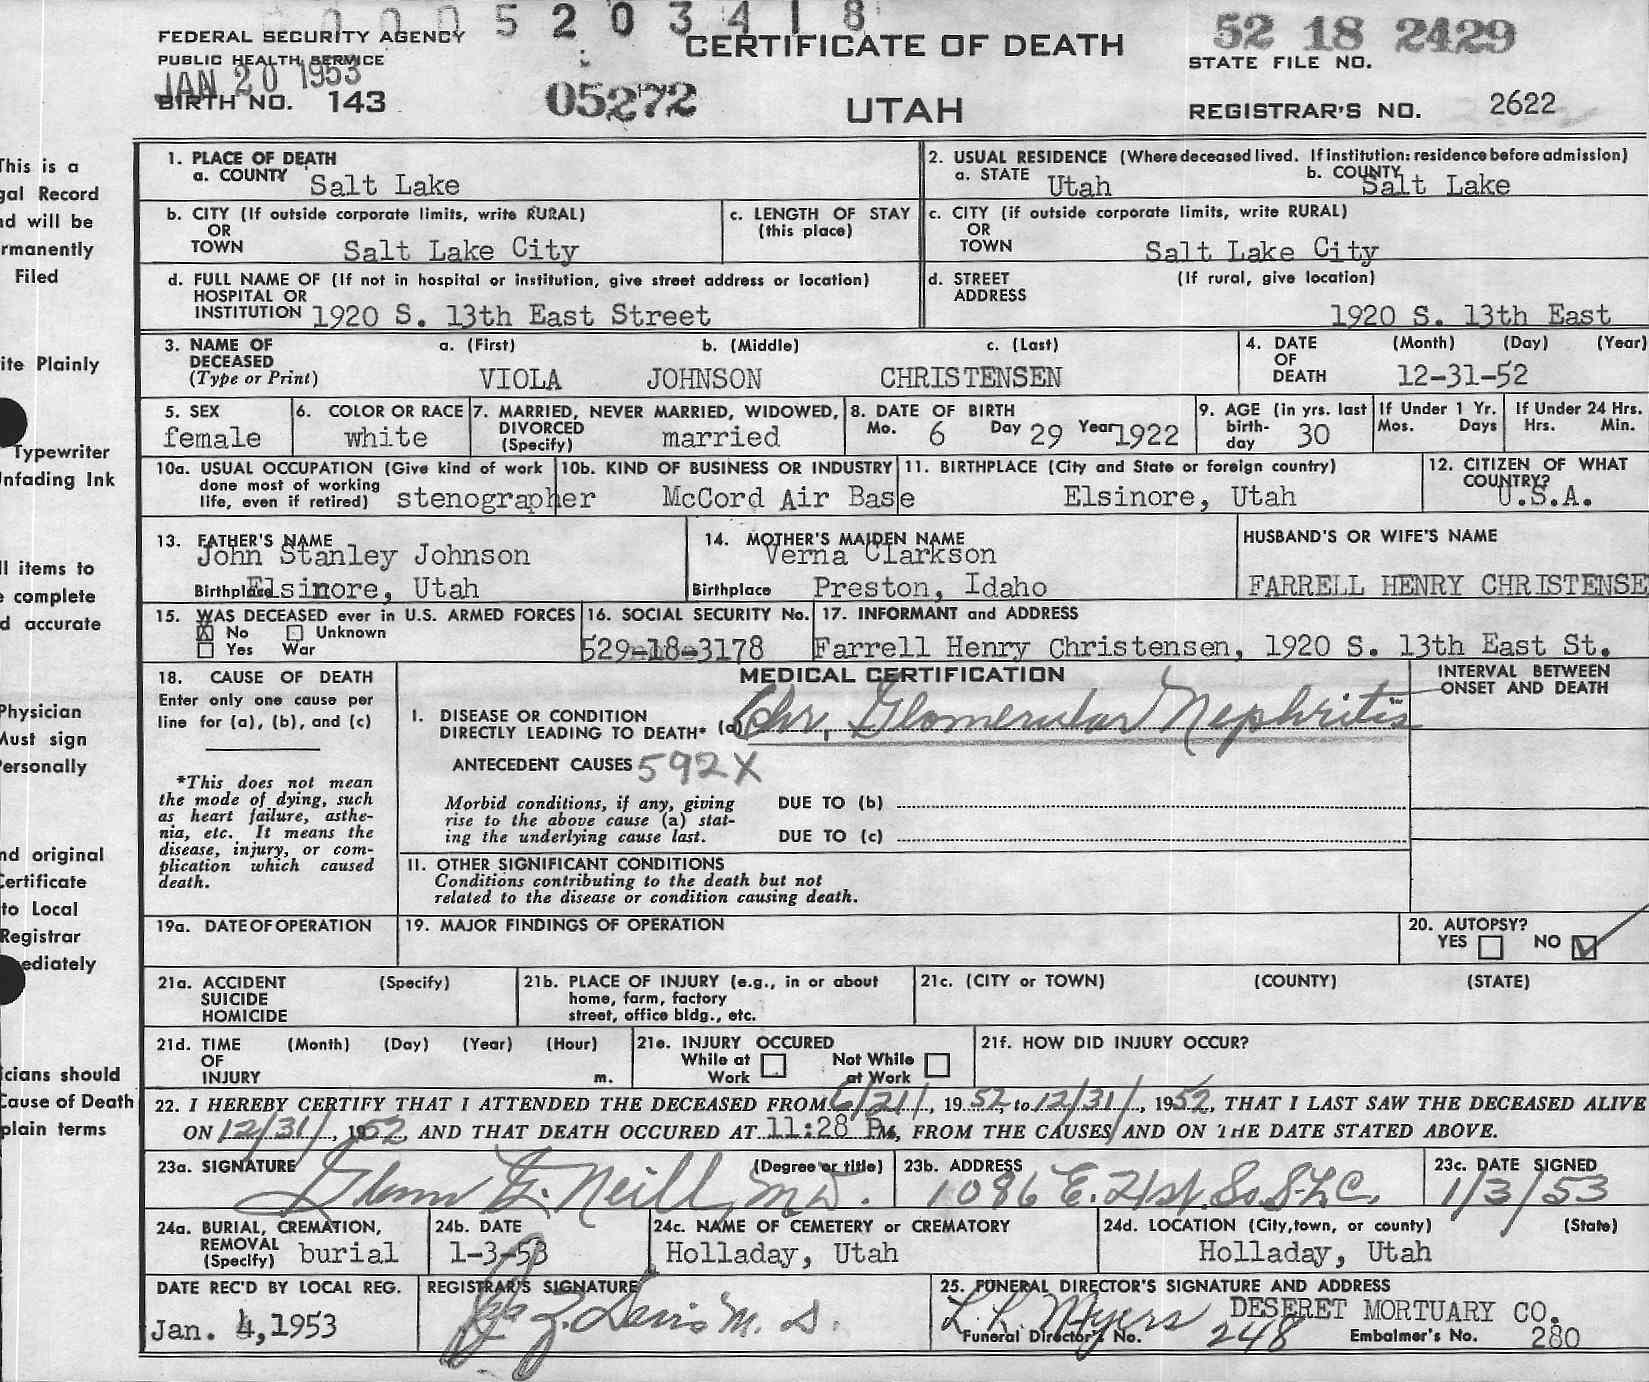 0005203418
52 18 2429
FEDERAL SECURITY AGENCY
PUBLIC HEALTH SERVICE
CERTIFICATE OF DEATH
STATE FILE NO.
JAN 20 1953
BIRTH NO. 143
05272
UTAH
REGISTRAR'S NO. 2622
This is a
gal Record
nd will be
rmanently
Filed
ite Plainly
Typewriter
nfading Ink
ll items to
e complete
d accurate
Physician
Must sign
ersonally
nd original
Certificate
to Local
Registrar
ediately
cians should
Cause of Death
plain terms
1. PLACE OF DEATH
a. COUNTY Salt Lake
2. USUAL RESIDENCE (Where deceased lived. If institution: residence before admission)
a. STATE Utah b. COUNTY Salt Lake
b. CITY (If outside corporate limits, write RURAL)
OR
TOWN Salt Lake City
c. LENGTH OF STAY
(this place)
c. CITY (if outside corporate limits, write RURAL)
OR
TOWN Salt Lake City
d. FULL NAME OF (If not in hospital or institution, give street address or location)
HOSPITAL OR
INSTITUTION 1920 S. 13th East Street
d. STREET (If rural, give location)
ADDRESS
1920 S. 13th East
3. NAME OF a. (First) b. (Middle) c. (Last)
DECEASED
(Type or Print) VIOLA JOHNSON CHRISTENSEN
4. DATE (Month) (Day) (Year)
OF
DEATH 12-31-52
5. SEX
female
6. COLOR OR RACE
white
7. MARRIED, NEVER MARRIED, WIDOWED,
DIVORCED
(Specify) married
8. DATE OF BIRTH
Mo. 6 Day 29 Year 1922
9. AGE (in yrs. last
birth-
day 30
If Under 1 Yr.
Mos. Days
If Under 24 Hrs.
Hrs. Min.
10a. USUAL OCCUPATION (Give kind of work
done most of working
life, even if retired) stenographer
10b. KIND OF BUSINESS OR INDUSTRY
McCord Air Base
11. BIRTHPLACE (City and State or foreign country)
Elsinore, Utah
12. CITIZEN OF WHAT
COUNTRY?
U.S.A.
13. FATHER'S NAME
John Stanley Johnson
Birthplace Elsinore, Utah
14. MOTHER'S MAIDEN NAME
Verna Clarkson
Birthplace Preston, Idaho
HUSBAND'S OR WIFE'S NAME
FARRELL HENRY CHRISTENSE
15. WAS DECEASED ever in U.S. ARMED FORCES
X No Unknown
Yes War
16. SOCIAL SECURITY No.
529-18-3178
17. INFORMANT and ADDRESS
Farrell Henry Christensen, 1920 S. 13th East St.
18. CAUSE OF DEATH
Enter only one cause per
line for (a), (b), and (c)
*This does not mean
the mode of dying, such
as heart failure, asthe-
nia, etc. It means the
disease, injury, or com-
plication which caused
death.
MEDICAL CERTIFICATION
INTERVAL BETWEEN
ONSET AND DEATH
I. DISEASE OR CONDITION
DIRECTLY LEADING TO DEATH* (a) Chr, Glomerular Nephritis
ANTECEDENT CAUSES 592X
Morbid conditions, if any, giving
rise to the above cause (a) stat-
ing the underlying cause last.
DUE TO (b)
DUE TO (c)
II. OTHER SIGNIFICANT CONDITIONS
Conditions contributing to the death but not
related to the disease or condition causing death.
19a. DATE OF OPERATION
19. MAJOR FINDINGS OF OPERATION
20. AUTOPSY?
YES NO
21a. ACCIDENT (Specify)
SUICIDE
HOMICIDE
21b. PLACE OF INJURY (e.g., in or about
home, farm, factory
street, office bldg., etc.
21c. (CITY or TOWN) (COUNTY) (STATE)
21d. TIME (Month) (Day) (Year) (Hour)
OF
INJURY m.
21e. INJURY OCCURED
While at Not While
Work at Work
21f. HOW DID INJURY OCCUR?
22. I HEREBY CERTIFY THAT I ATTENDED THE DECEASED FROM 6/21/, 1952, to 12/31/, 1952, THAT I LAST SAW THE DECEASED ALIVE
ON 12/31/, 1952, AND THAT DEATH OCCURED AT 11:28 P.M., FROM THE CAUSES AND ON THE DATE STATED ABOVE.
23a. SIGNATURE (Degree or title)
Glenn G. Neill, M.D.
23b. ADDRESS
1086 E. 21st. So. S.L.C.
23c. DATE SIGNED
1/3/53
24a. BURIAL, CREMATION,
REMOVAL
(Specify) burial
24b. DATE
1-3-53
24c. NAME OF CEMETERY or CREMATORY
Holladay, Utah
24d. LOCATION (City, town, or county) (State)
Holladay, Utah
DATE REC'D BY LOCAL REG.
Jan. 4, 1953
REGISTRAR'S SIGNATURE
Davis M. D.
25. FUNERAL DIRECTOR'S SIGNATURE AND ADDRESS
L. L. Myers DESERET MORTUARY CO.
Funeral Director's No. 248 Embalmer's No. 280